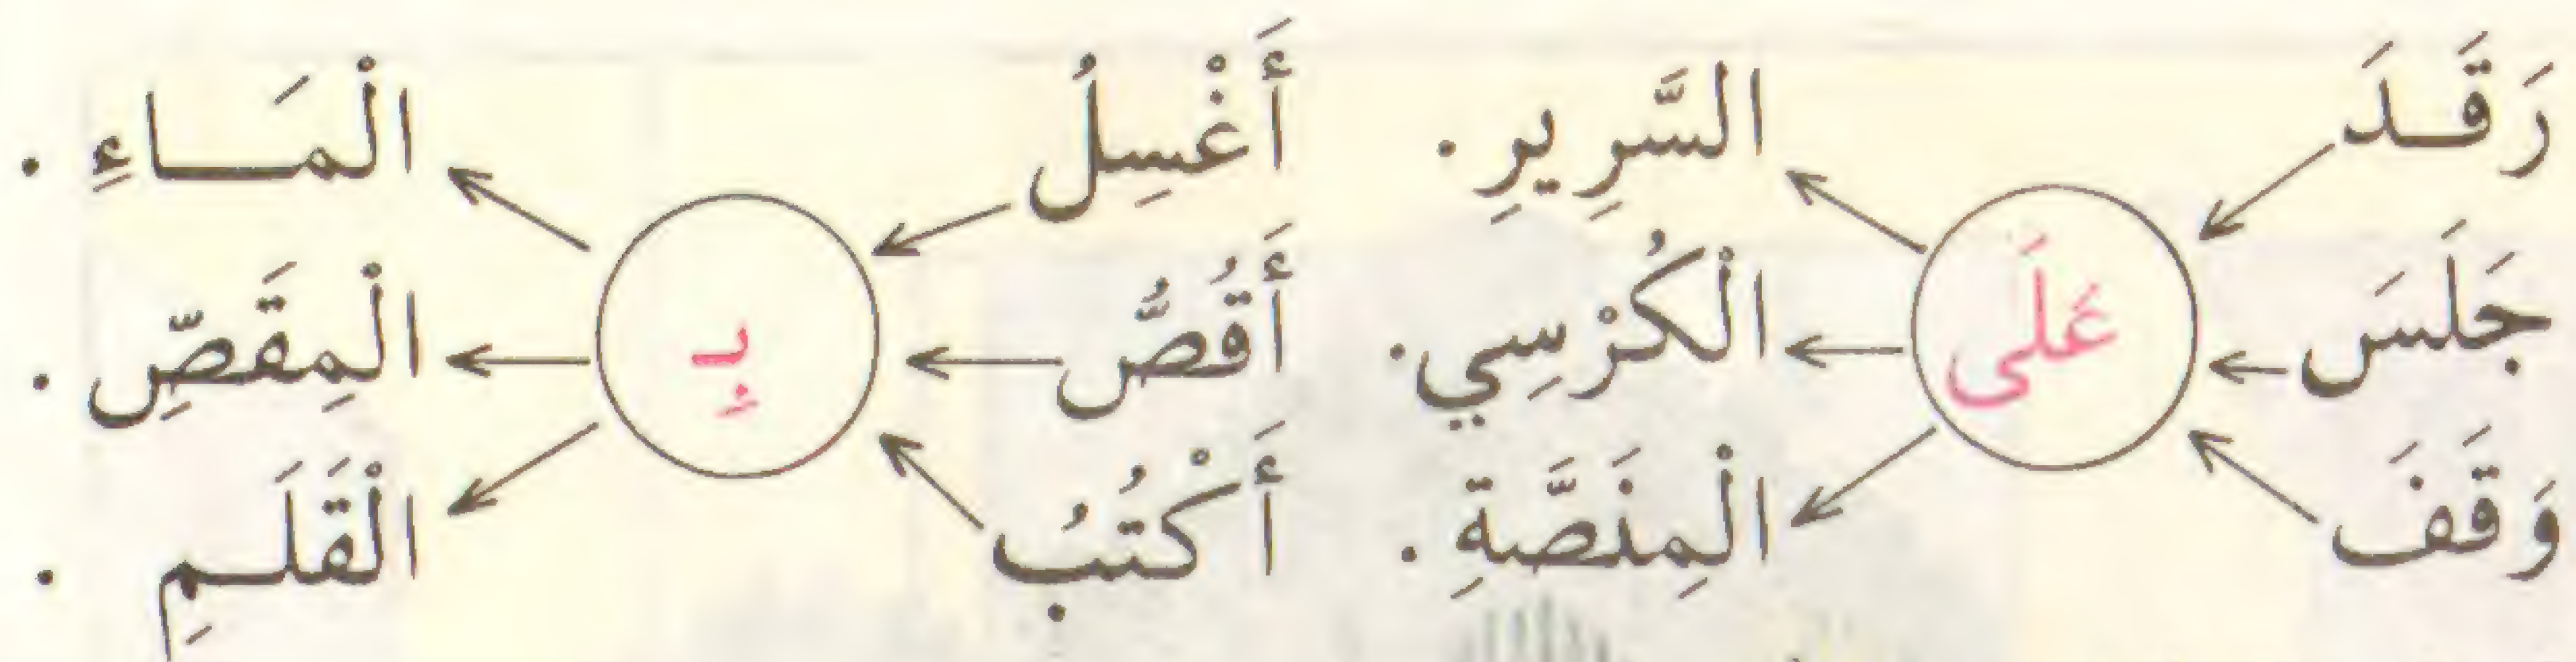 رَقَدَ
جَلَسَ
وَقَفَ
عَلَى
السَّرِيرِ .
الْكُرْسِي .
الْمِنَصَّةِ .
أَغْسِلُ
أَقُصُّ
أَكْتُبُ
بِـ
الْمَـاءِ .
الْمِقَصِّ .
الْقَلَـمِ .